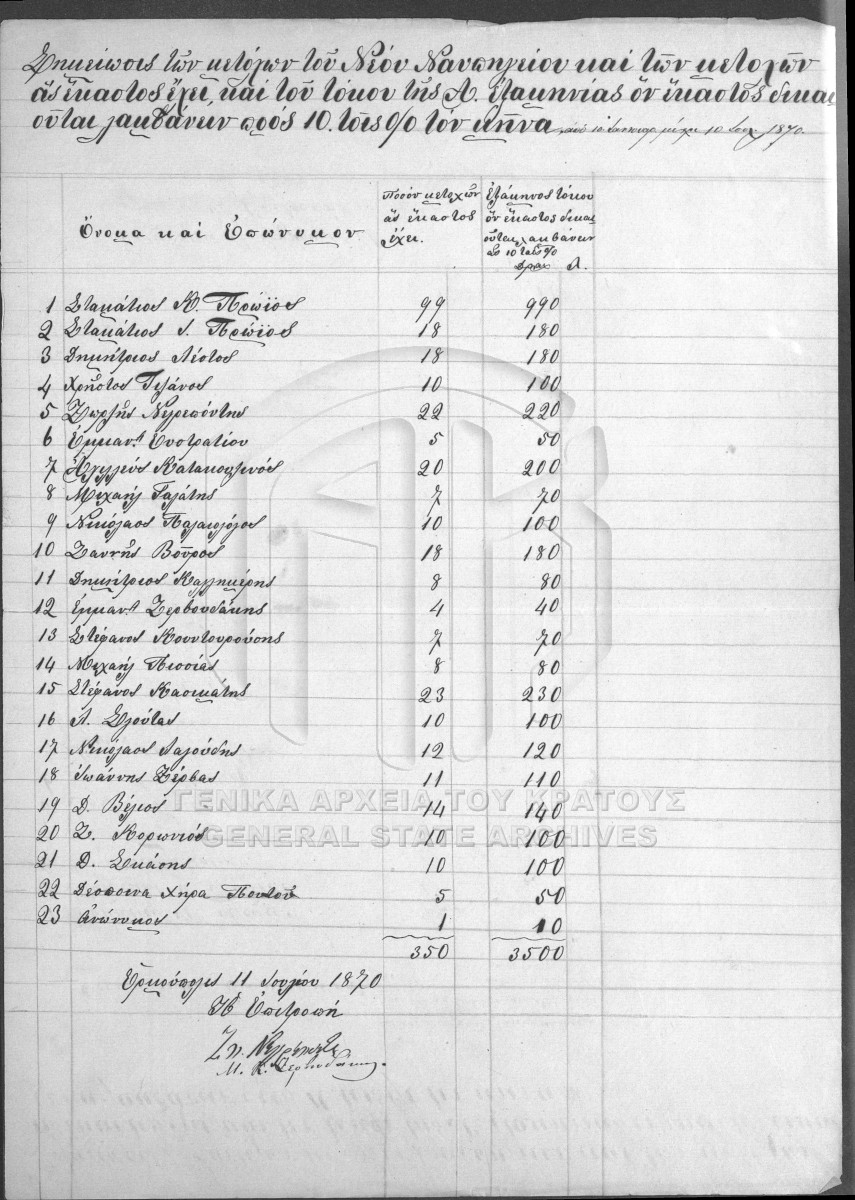 Σημείωσις τῶν μετόχων τοῦ Νέου Ναυπηγείου καὶ τῶν μετοχῶν
ἃς ἕκαστος ἔχει, καὶ τοῦ τόκου τῆς Α. ἑξαμηνίας ὃν ἕκαστος δικαι
οῦται λαμβάνειν πρὸς 10. τοῖς % τὸν μῆνα, ἀπὸ 10 μέχρι 10 Ἰουλ. 1870.
Ὄνομα καὶ Ἐπώνυμον
Ποσὸν μετοχῶν
ἃς ἕκαστος
ἔχει.
Ἑξάμηνος τόκου
ὃν ἕκαστος δικαι
οῦται λαμβάνειν
πρὸς 10 τοῖς %
Δραχ Λ.
1 Σταμάτιος Κ. Πρώϊος 99 990
2 Σταμάτιος Ι. Πρώϊος 18 180
3 Δημήτριος Λέστος 18 180
4 Χρῆστος Τζάνος 10 100
5 Ζωρζῆς Νεγρεπόντης 22 220
6 Ἐμμαν. Εὐστρατίου 5 50
7 Ἀχιλλεύς Κατακουζινός 20 200
8 Μιχαήλ Γαλάτης 7 70
9 Νικόλαος Παλαιολόγος 10 100
10 Ζαννῆς Βοῦρος 18 180
11 Δημήτριος Καλλημέρης 8 80
12 Ἐμμαν. Ζερβουδάκης 4 40
13 Στέφανος Κουντουρούσης 7 70
14 Μιχαήλ Πισσίας 8 80
15 Στέφανος Κασιμάτης 23 230
16 Α. Σλούτας 10 100
17 Νικόλαος Λαλούδης 12 120
18 Ἰωάννης Ζέρβας 11 110
19 Δ. Βέλιος 14 140
20 Ζ. Κορωνιός 10 100
21 Δ. Σκάσης 10 100
22 Δέσποινα Χήρα Ποντοῦ 5 50
23 Ἀνώνυμος 1 10
350 3500
Ἑρμούπολις 11 Ἰουλίου 1870
Ἡ Ἐπιτροπή
Ζ. Νεγρεπόντης
Μ. Κ. Ζερβουδάκης
ΓΕΝΙΚΑ ΑΡΧΕΙΑ ΤΟΥ ΚΡΑΤΟΥΣ
GENERAL STATE ARCHIVES